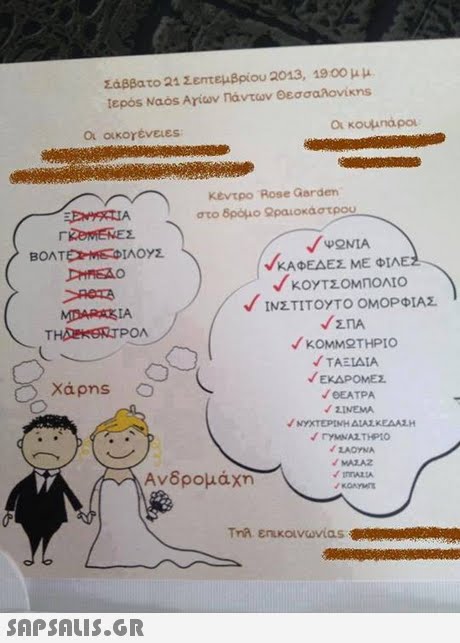 Σάββατο 21 Σεπτεμβρίου 2013, 19:00 μ.μ.
Ιερός Ναός Αγίων Πάντων Θεσσαλονίκης
Οι οικογένειες:
Οι κουμπάροι:
Κέντρο "Rose Garden"
στο δρόμο Ωραιοκάστρου
ΞΕΝΥΧΤΙΑ
ΓΚΟΜΕΝΕΣ
ΒΟΛΤΕΣ ΜΕ ΦΙΛΟΥΣ
ΓΗΠΕΔΟ
ΠΟΤΑ
ΜΠΑΡΑΚΙΑ
ΤΗΛΕΚΟΝΤΡΟΛ
✓ΨΩΝΙΑ
✓ΚΑΦΕΔΕΣ ΜΕ ΦΙΛΕΣ
✓ΚΟΥΤΣΟΜΠΟΛΙΟ
✓ΙΝΣΤΙΤΟΥΤΟ ΟΜΟΡΦΙΑΣ
✓ΣΠΑ
✓ΚΟΜΜΩΤΗΡΙΟ
✓ΤΑΞΙΔΙΑ
✓ΕΚΔΡΟΜΕΣ
✓ΘΕΑΤΡΑ
✓ΣΙΝΕΜΑ
✓ΝΥΧΤΕΡΙΝΗ ΔΙΑΣΚΕΔΑΣΗ
✓ΓΥΜΝΑΣΤΗΡΙΟ
✓ΣΑΟΥΝΑ
✓ΜΑΣΑΖ
✓ΙΠΠΑΣΙΑ
✓ΚΟΛΥΜΠΙ
Χάρης
Ανδρομάχη
Τηλ. επικοινωνίας:
SAPSALIS.GR